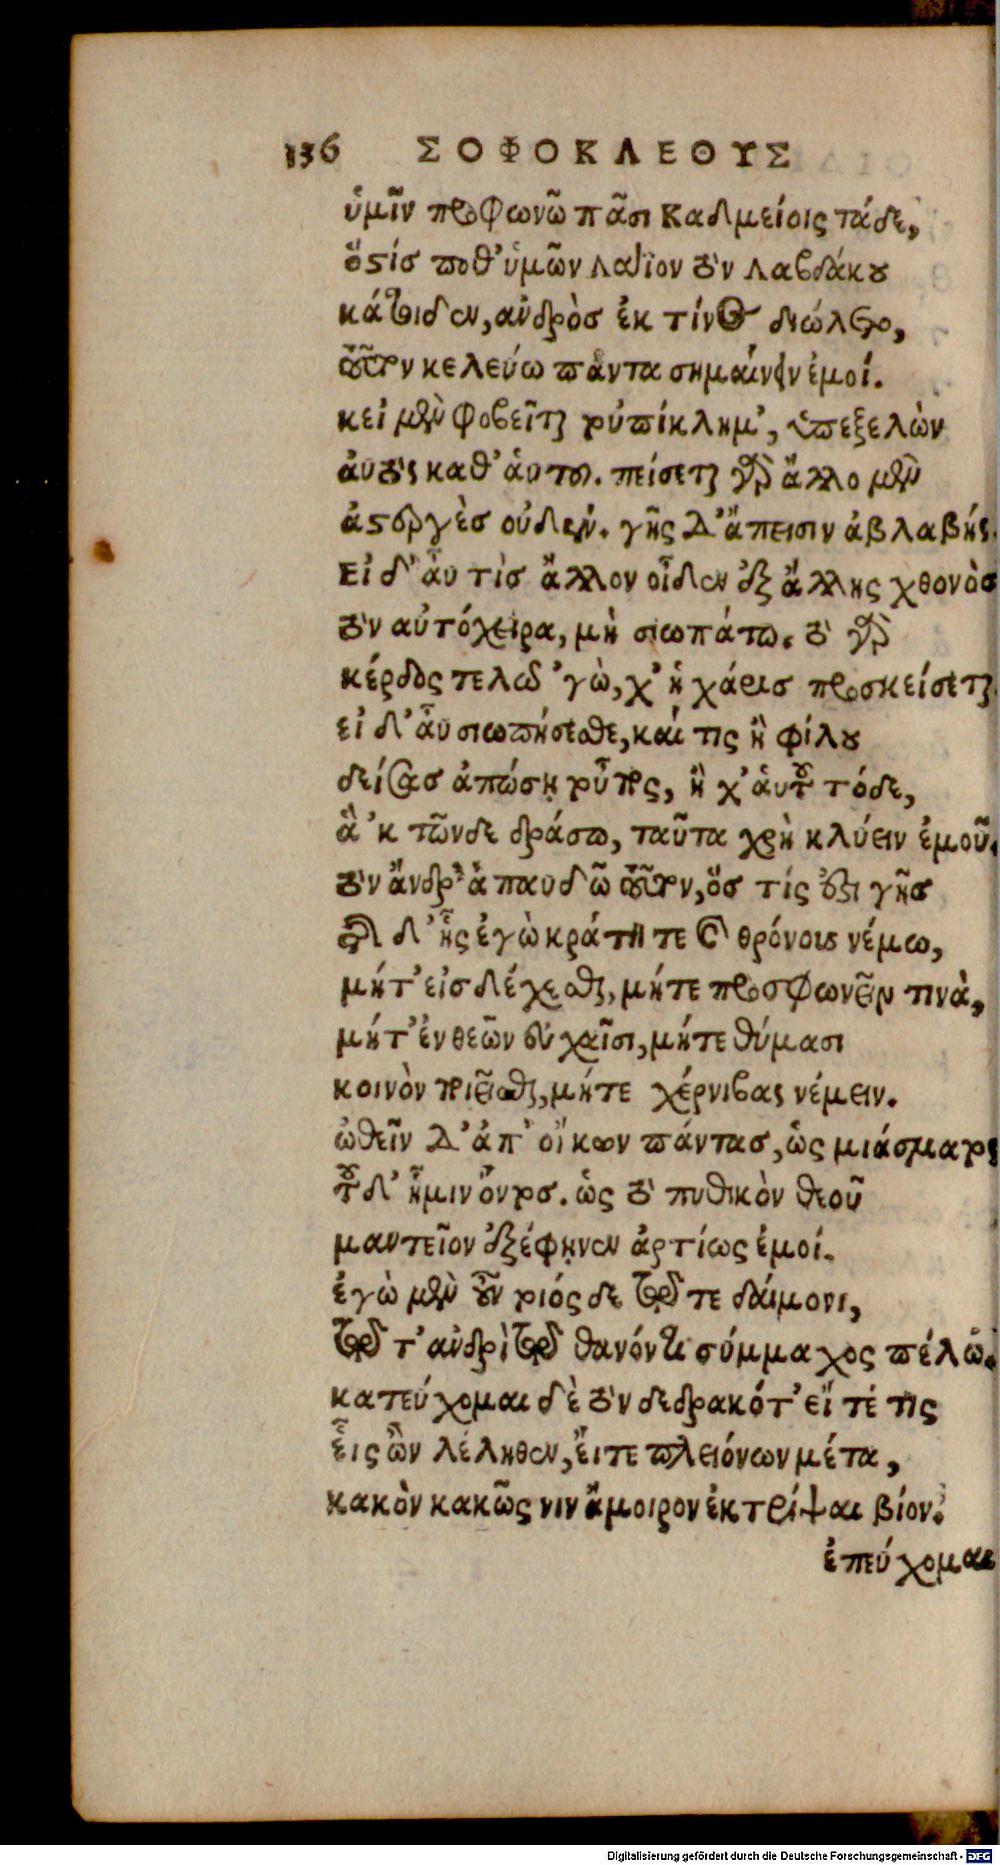 136 ΣΟΦΟΚΛΕΟΥΣ
ὑμῖν προφωνῶ πᾶσι Καδμείοις τάδε,
ὅστίς ποθ’ ὑμῶν λάϊον τὸν λαβδάκου
κάτοιδεν, ἀνδρὸς ἐκ τίνος διώλετο,
τοῦτον κελεύω πάντα σημαίνειν ἐμοί.
κεἰ μὲν φοβεῖται τοὐπίκλημ’, ὑπεξελὼν
αὐτὸς καθ’ αὑτοῦ. πείσεται γὰρ ἄλλο μὲν
ἀστεργὲς οὐδέν. γῆς δ’ ἄπεισιν ἀβλαβής.
Εἰ δ’ αὖ τὶς ἄλλον οἶδεν ἐξ ἄλλης χθονὸς
τὸν αὐτόχειρα, μὴ σιωπάτω. τὸ γὰρ
κέρδος τελῶ ’γὼ, χ’ ἡ χάρις προσκείσεται
εἰ δ’ αὖ σιωπήσεσθε, καί τις ἢ φίλου
δείσας ἀπώσῃ τοὖπος, ἢ χ’ αὑτοῦ τόδε,
ἃ ’κ τῶνδε δράσω, ταῦτα χρὴ κλύειν ἐμοῦ.
τὸν ἄνδρ’ ἀπαυδῶ τοῦτον, ὅς τίς ἐστι γῆς
τῆσδ’ ἧς ἐγὼ κράτη τε καὶ θρόνους νέμω,
μήτ’ εἰσδέχεσθαι, μήτε προσφωνεῖν τινὰ,
μήτ’ ἐν θεῶν εὐχαῖσι, μήτε θύμασι
κοινὸν ποιεῖσθαι, μήτε χέρνιβας νέμειν.
ὠθεῖν δ’ ἀπ’ οἴκων πάντας, ὡς μιάσματος
τοῦδ’ ἧμιν ὄντος. ὡς τὸ πυθικὸν θεοῦ
μαντεῖον ἐξέφηνεν ἀρτίως ἐμοί.
ἐγὼ μὲν οὖν τοιόςδε τῷ τε δαίμονι,
τῷ τ’ ἀνδρὶ τῷ θανόντι σύμμαχος πέλω.
κατεύχομαι δὲ τὸν δεδρακότ’ εἴ τέ τις
εἷς ὢν λέληθεν, εἴτε πλειόνων μέτα,
κακὸν κακῶς νιν ἄμοιρον ἐκτρίψαι βίον.
ἐπεύχομαι
Digitalisierung gefördert durch die Deutsche Forschungsgemeinschaft - DFG